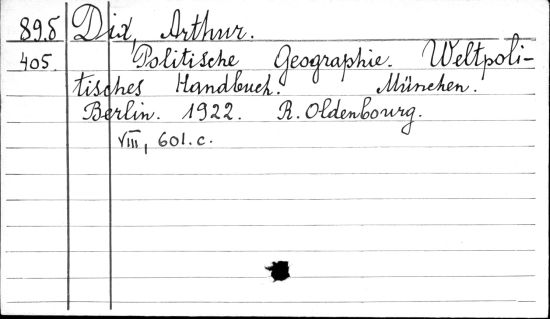 89.5 Dix, Arthur.
405. Politische Geographie. Weltpoli-
tisches Handbuch. München.
Berlin. 1922. R. Oldenbourg.
VIII, 601.c.